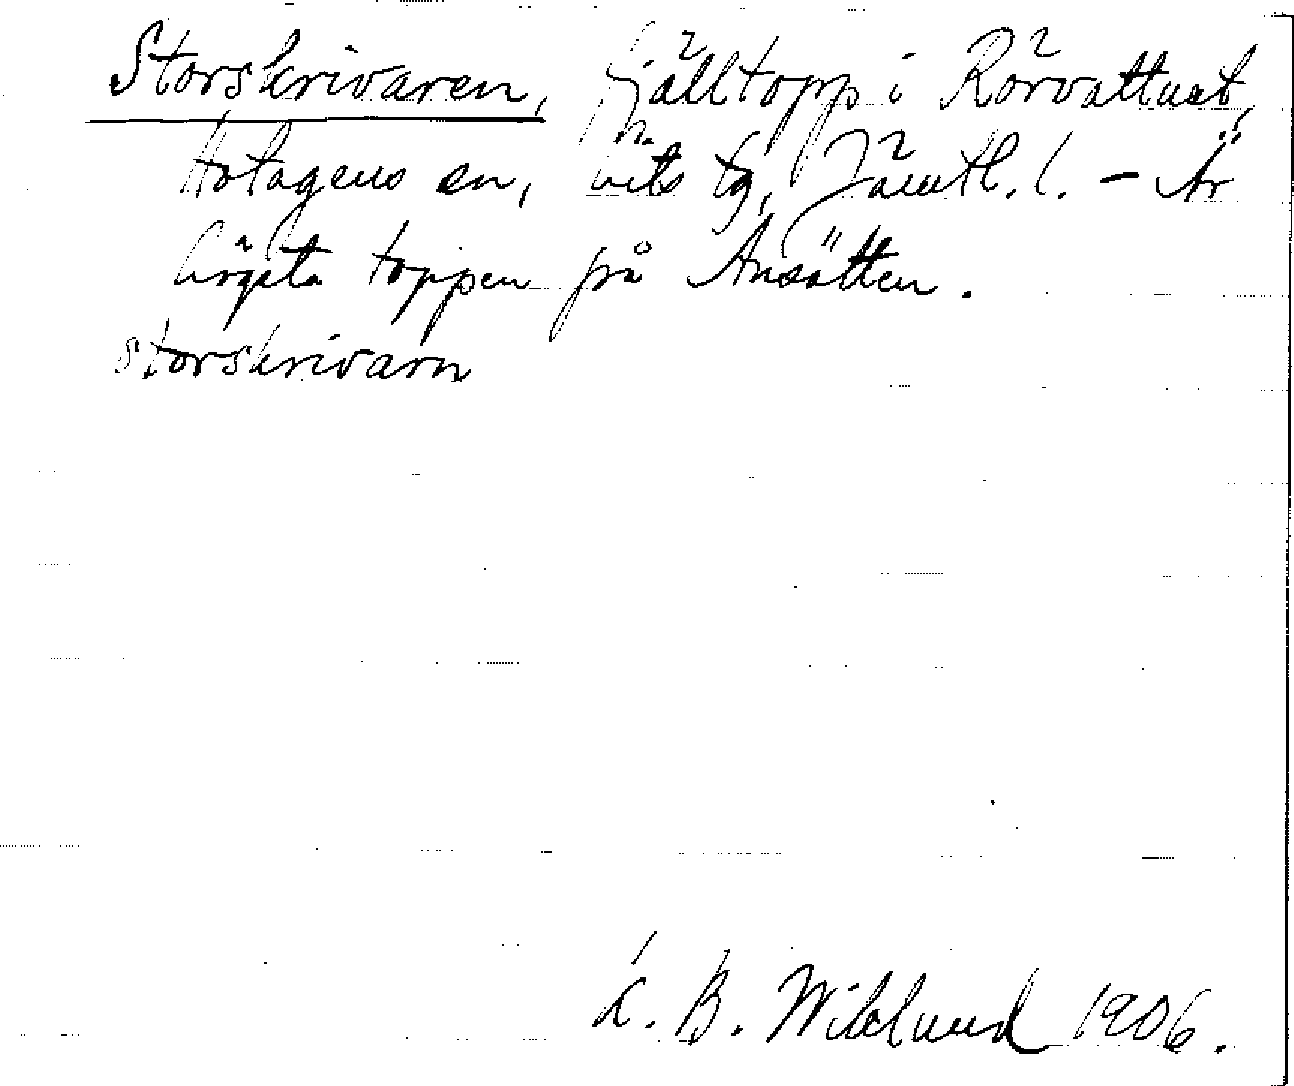 Storskrivaren, fjälltopp i Rörvattnet,
Hotagens sn, Lits tg, Jämtl. l. – Är
högsta toppen på Ansätten.
storskrivarn
K. B. Wiklund 1906.